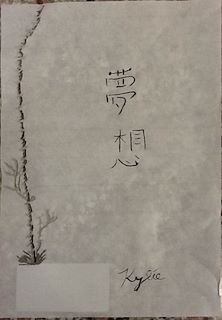 夢
想
Kylie